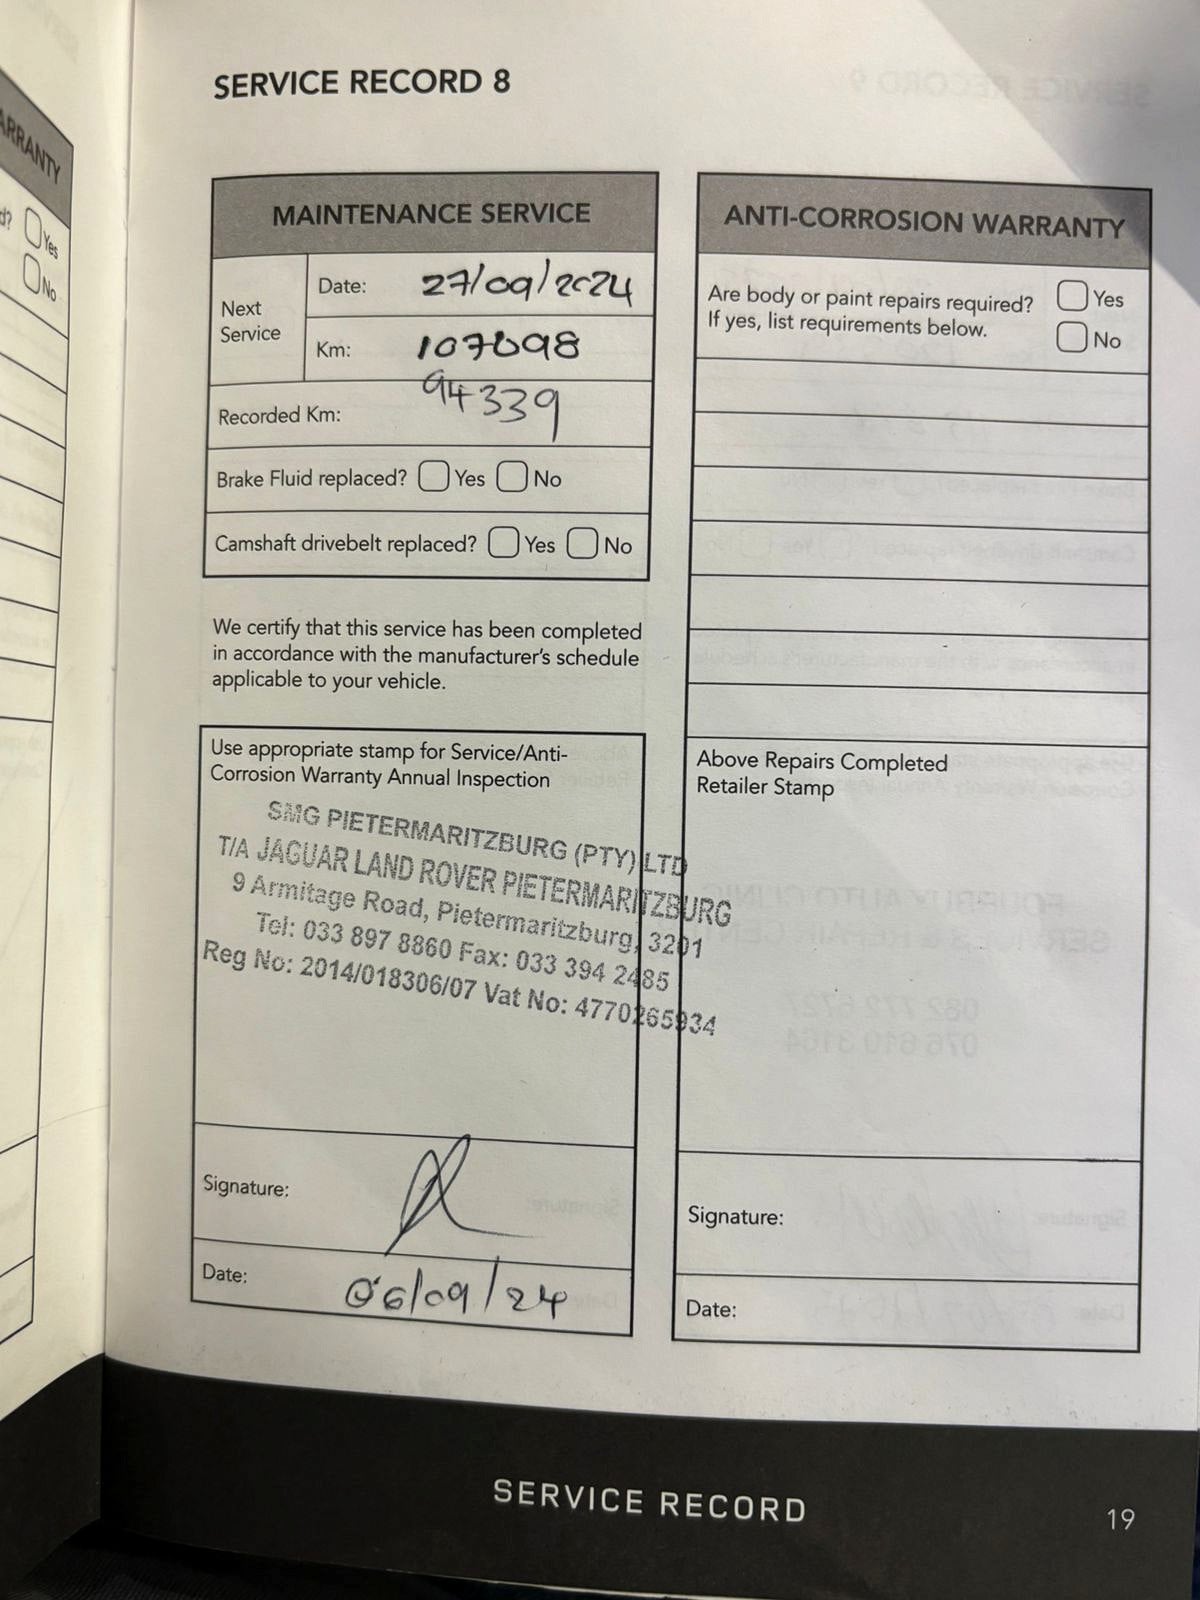 ARRANTY
d?
Yes
No
SERVICE RECORD 8
MAINTENANCE SERVICE
Next
Service
Date: 27/09/2024
Km: 107098
Recorded Km: 94339
Brake Fluid replaced? Yes No
Camshaft drivebelt replaced? Yes No
We certify that this service has been completed
in accordance with the manufacturer's schedule
applicable to your vehicle.
Use appropriate stamp for Service/Anti-
Corrosion Warranty Annual Inspection
SMG PIETERMARITZBURG (PTY) LTD
T/A JAGUAR LAND ROVER PIETERMARITZBURG
9 Armitage Road, Pietermaritzburg, 3201
Tel: 033 897 8860 Fax: 033 394 2485
Reg No: 2014/018306/07 Vat No: 4770265934
Signature:
Date: 06/09/24
ANTI-CORROSION WARRANTY
Are body or paint repairs required? Yes
If yes, list requirements below. No
Above Repairs Completed
Retailer Stamp
Signature:
Date:
SERVICE RECORD
19